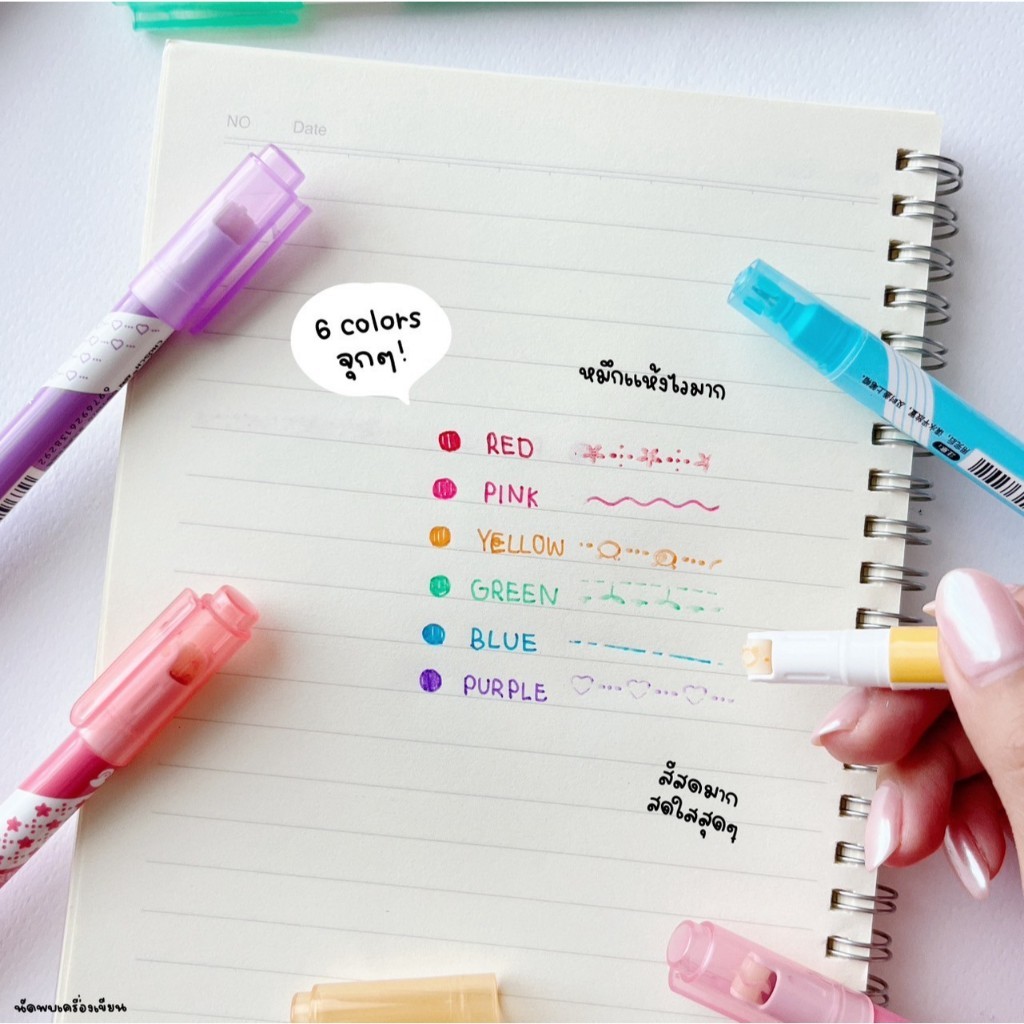 NO Date
6 colors
จุกๆ!
หมึกแห้งไวมาก
RED
PINK
YELLOW
GREEN
BLUE
PURPLE
สีสดมาก
สดใสสุดๆ
นัดพบเครื่องเขียน